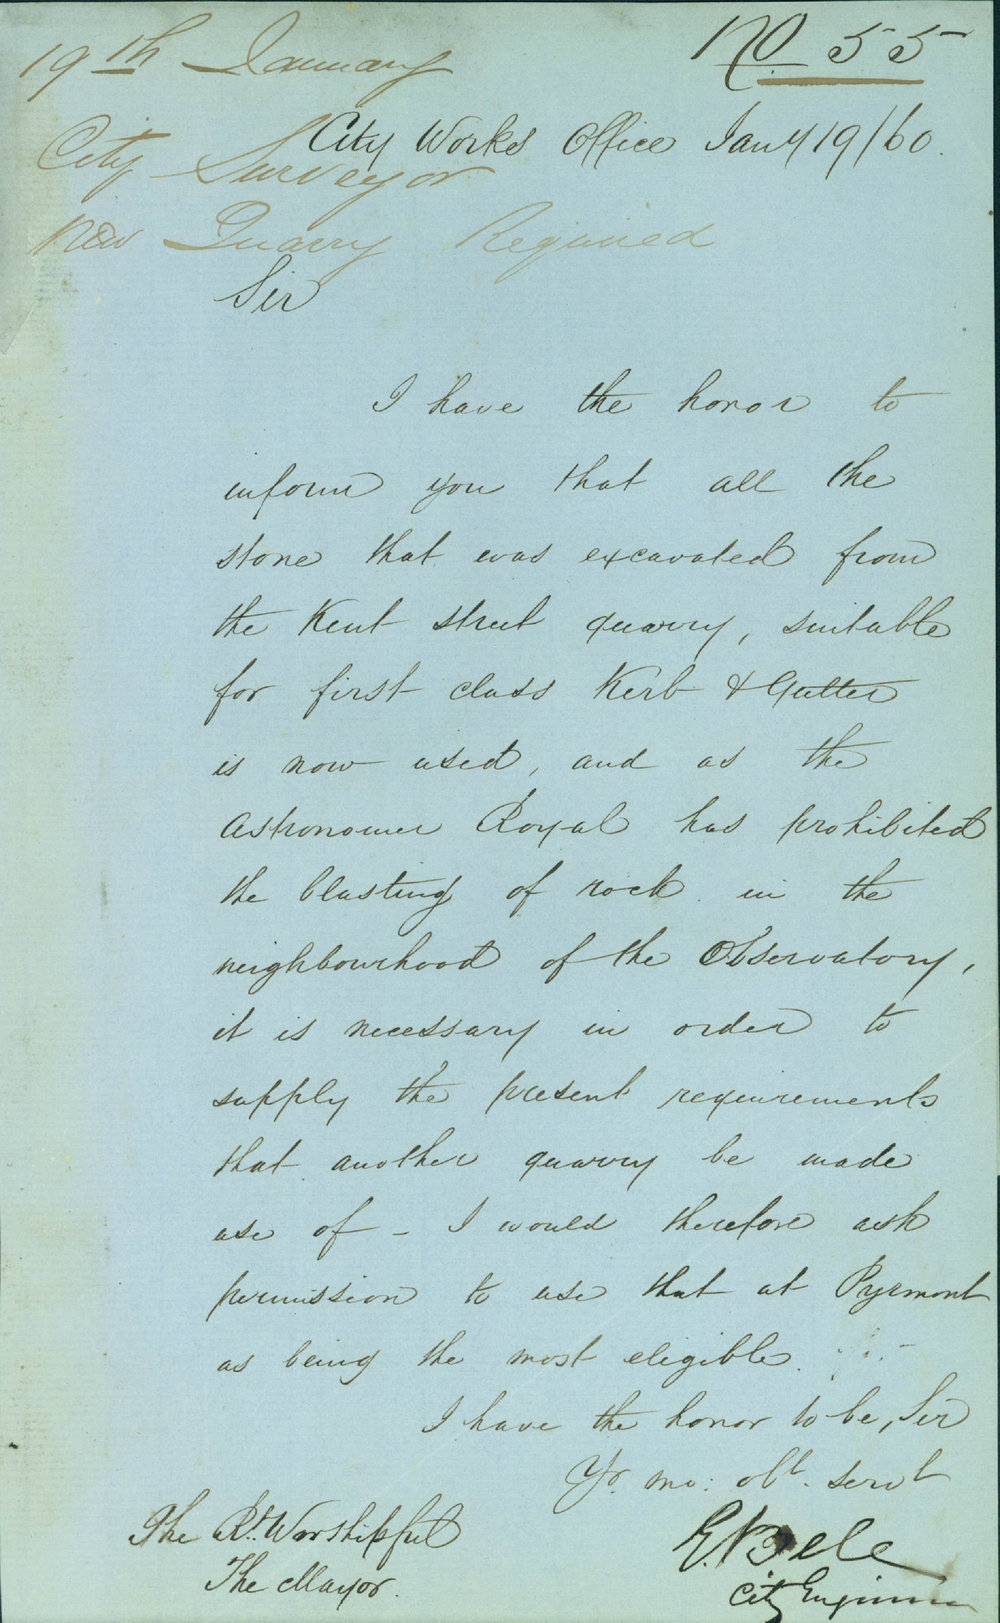 No. 55
19th January
City Surveyor
New Quarry Required
City Works Office Jany 19/60.
Sir
I have the honor to
inform you that all the
stone that was excavated from
the Kent Street quarry, suitable
for first class Kerb & Gutter
is now used, and as the
Astronomer Royal has prohibited
the blasting of rock in the
neighbourhood of the Observatory,
it is necessary in order to
supply the present requirements
that another quarry be made
use of - I would therefore ask
permission to use that at Pyrmont
as being the most eligible.
I have the honor to be, Sir
Yr. mo: obt. servt
E Bell
City Engineer
The Rt. Worshipful
The Mayor.